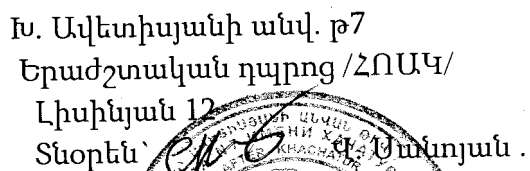 Խ. Ավետիսյանի անվ. թ7
Երաժշտական դպրոց /ՀՈԱԿ/
Լիսինյան 12
Տնօրեն՝ Վ. Մանոյան .